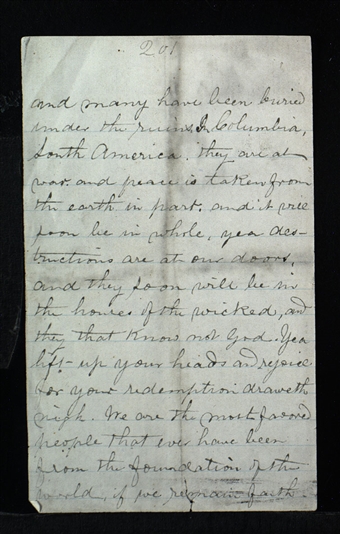 201
and many have been buried
under the ruins. In Columbia,
South America. they are at
war. and peace is taken from
the earth in part. and it will
soon be in whole, yea des-
tructions are at our doors,
and they soon will be in
the houses of the wicked, and
they that know not God. Yea
lift up your heads and rejoice
for your redemption draweth
nigh. We are the most favored
people that ever have been
from the foundation of the
world, if we remain faith-